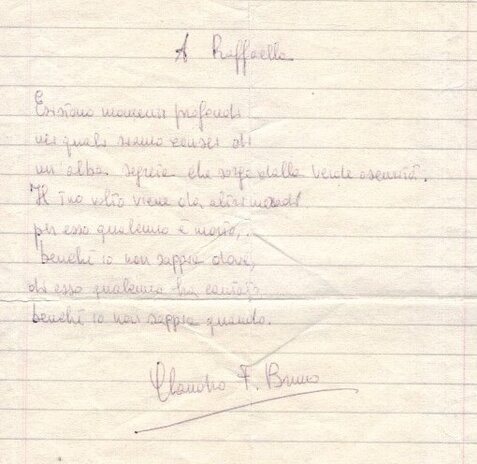 A Raffaella
Esistono momenti profondi
nei quali siamo consci di
un'alba segreta che sorge dalla verde oscurità.
Il tuo volto viene da altri mondi
per esso qualcuno è morto,
benché io non sappia dove,
di esso qualcuno ha cantato,
benché io non sappia quando.
Claudio F. Bruno